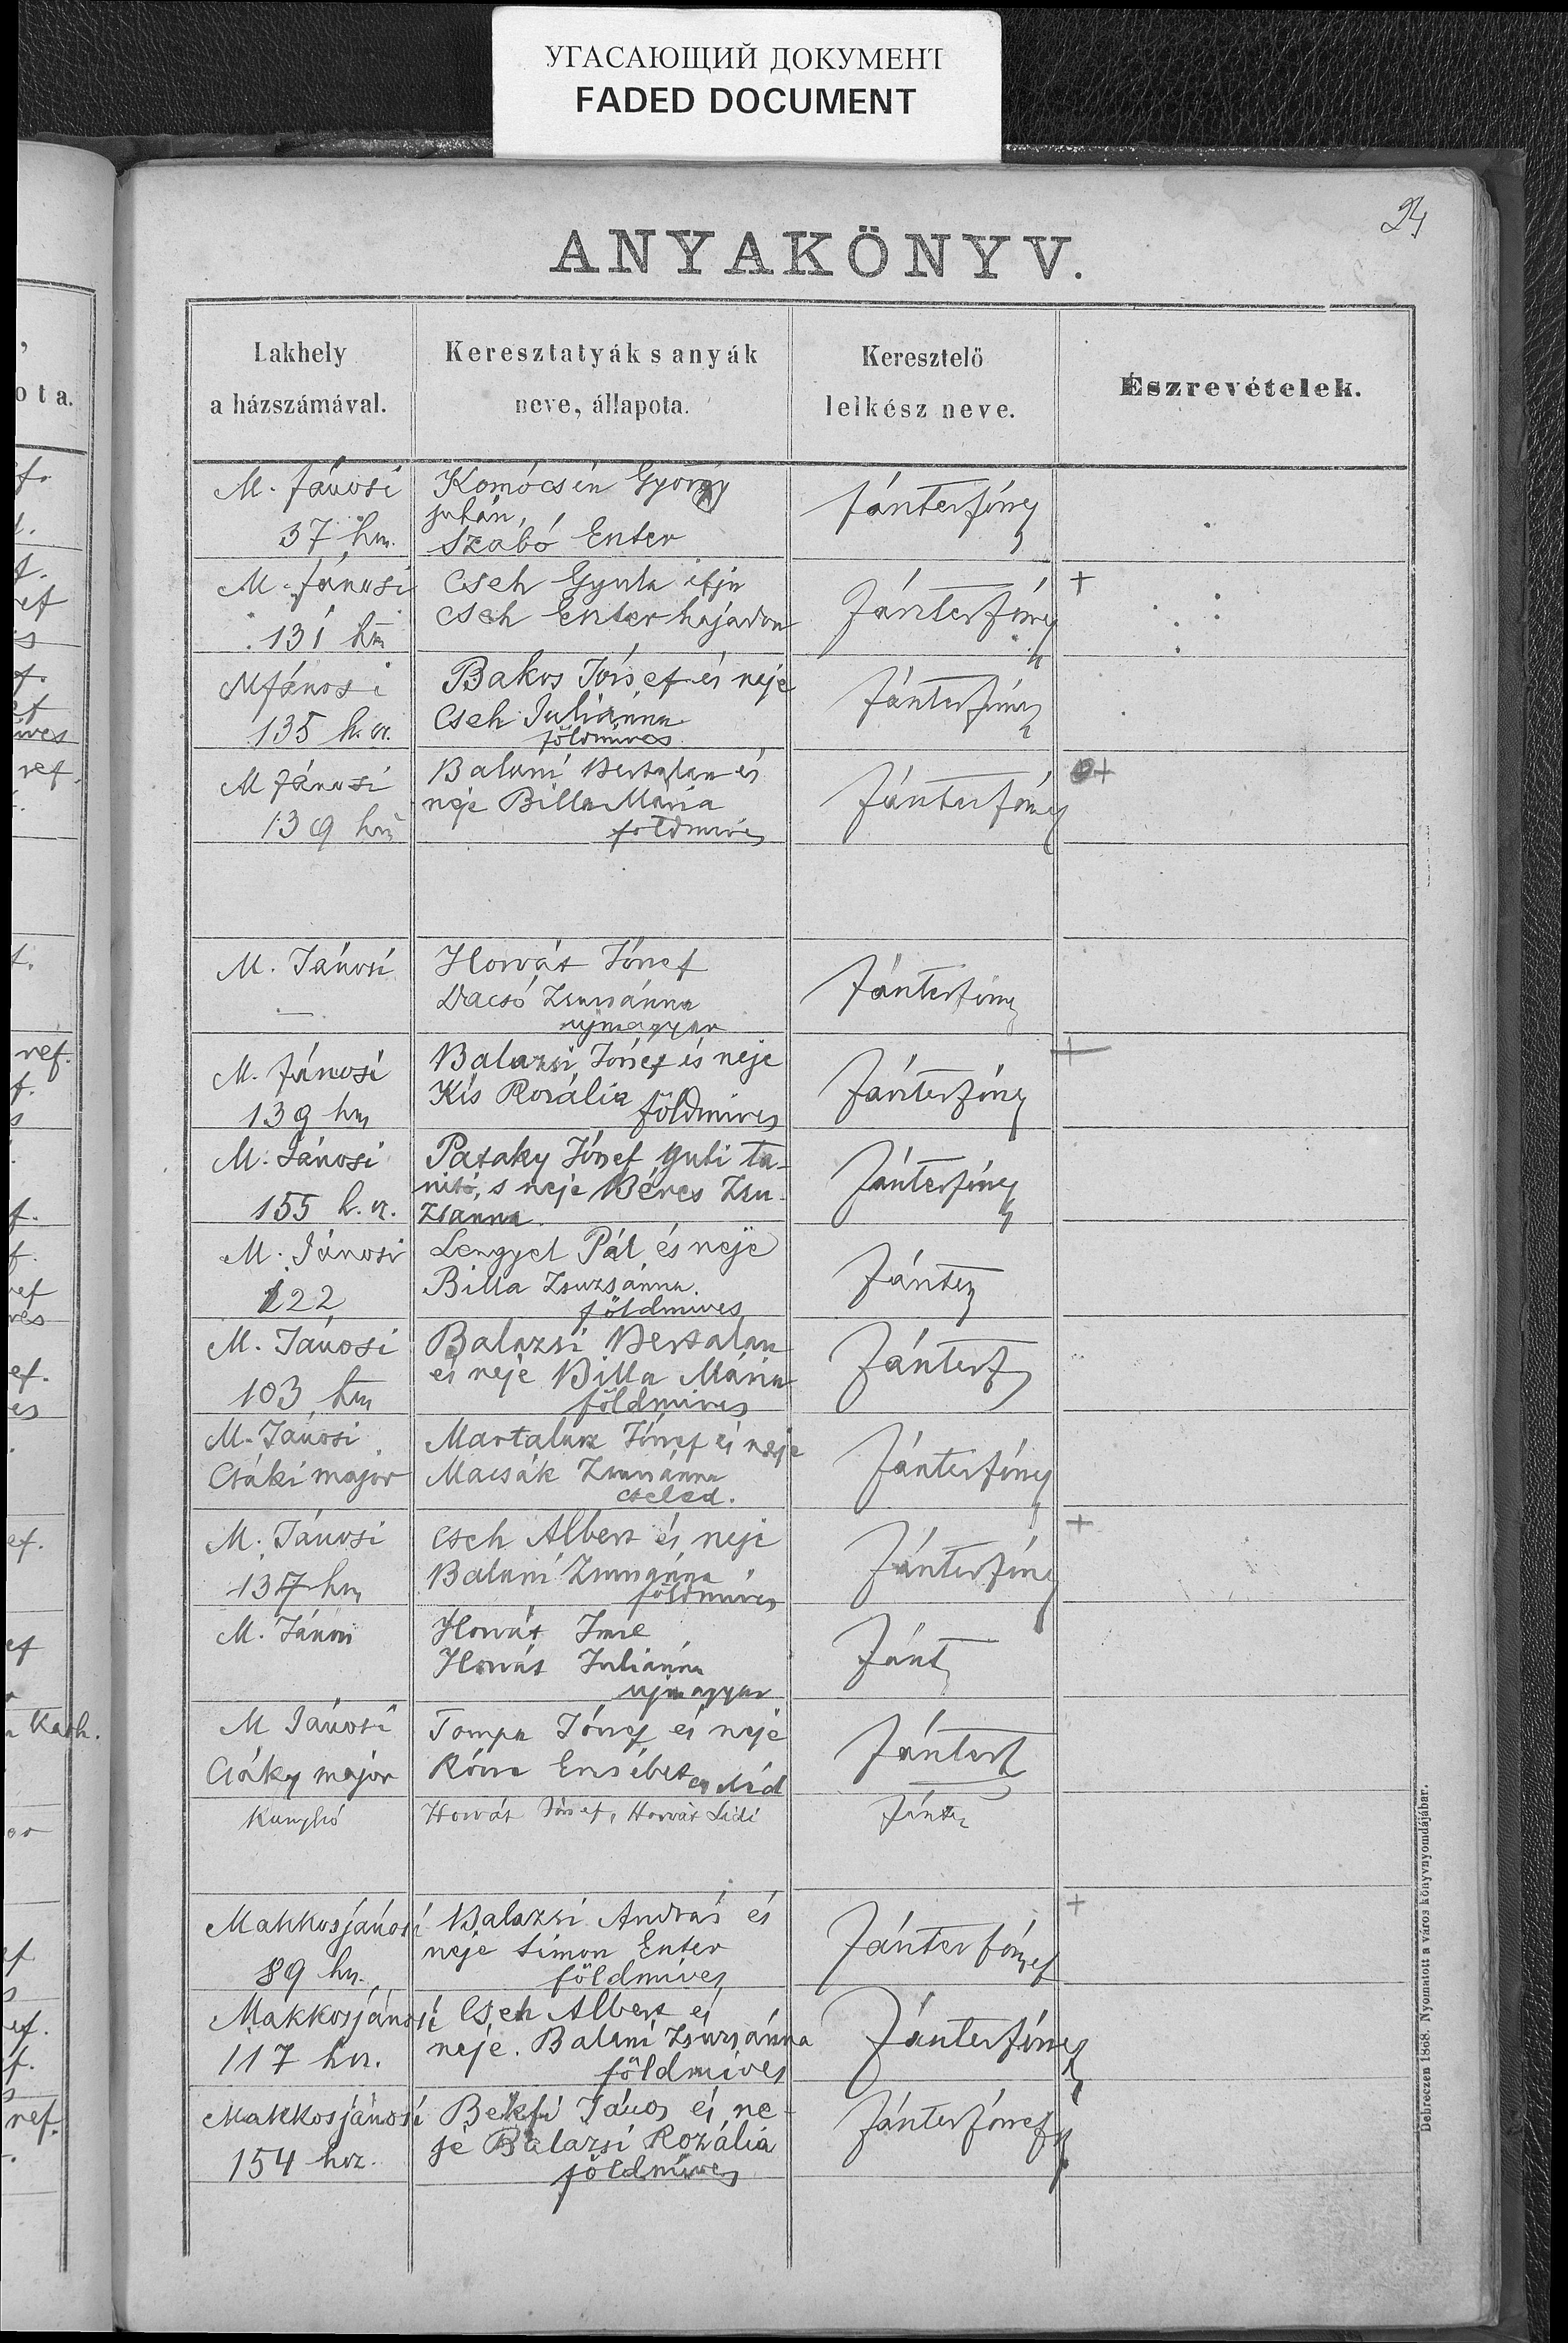 УГАСАЮЩИЙ ДОКУМЕНТ
FADED DOCUMENT
24
ANYAKÖNYV.
Lakhely
a házszámával.
Keresztatyák s anyák
neve, állapota.
Keresztelő
lelkész neve.
Észrevételek.
M. Jánosi
37 hsz.
Komócsin György
juhán,
Szabó Eszter
Jánter
M. Jánosi
131 hsz
Cseh Gyula ifju
Cseh Eszter hajadon
Jánter
+
M Jánosi
135 h. sz.
Bakos József és neje
Cseh Juliánna
földmives
Jánter
M Jánosi
139 hsz
Balazsi Bertalan és
neje Billa Mária
földmives
Jánter
+
M. Jánosi
Horvát József
Dacsó Zsuzsánna
ujmagyar
Jánter
M. Jánosi
139 hsz
Balazsi József és neje
Kis Rozália földmives
Jánter
+
M. Jánosi
155 h. sz.
Pataky József guti ta-
nitó, s neje Béres Zsu-
zsanna.
Jánter
M. Jánosi
122
Lengyel Pál és neje
Billa Zsuzsánna.
földmives
Jánter
M. Jánosi
103 hsz
Balazsi Bertalan
és neje Billa Mária
földmives
Jánter
M. Jánosi
Csáki major
József és neje
Macsák Zsuzsánna
cseled.
Jánter
M. Jánosi
137 hsz
Cseh Albert és neje
Balazsi Zsuzsánna
földmives
Jánter
+
M. Jánosi
Horvát Imre
Horvát Juliánna
ujmagyar
Jánt
M Jánosi
Csáky major
Tompa József és neje
Rózsa Erzsébet cseléd
Jánter
Kunyhó
Horvát József, Horvát Lidi
Jánter
Makkosjánosi
89 hsz.
Balazsi András és
neje Simon Eszter
földmives
Jánter József
+
Makkosjánosi
117 hsz.
Cseh Albert és
neje. Balazsi Zsuzsánna
földmives
Jánter József
Makkosjánosi
154 hsz.
Bekfi János és ne-
je Balazsi Rozália
földmives
Jánter József
Debreczen 1868. Nyomatott a város könyvnyomdájábar.